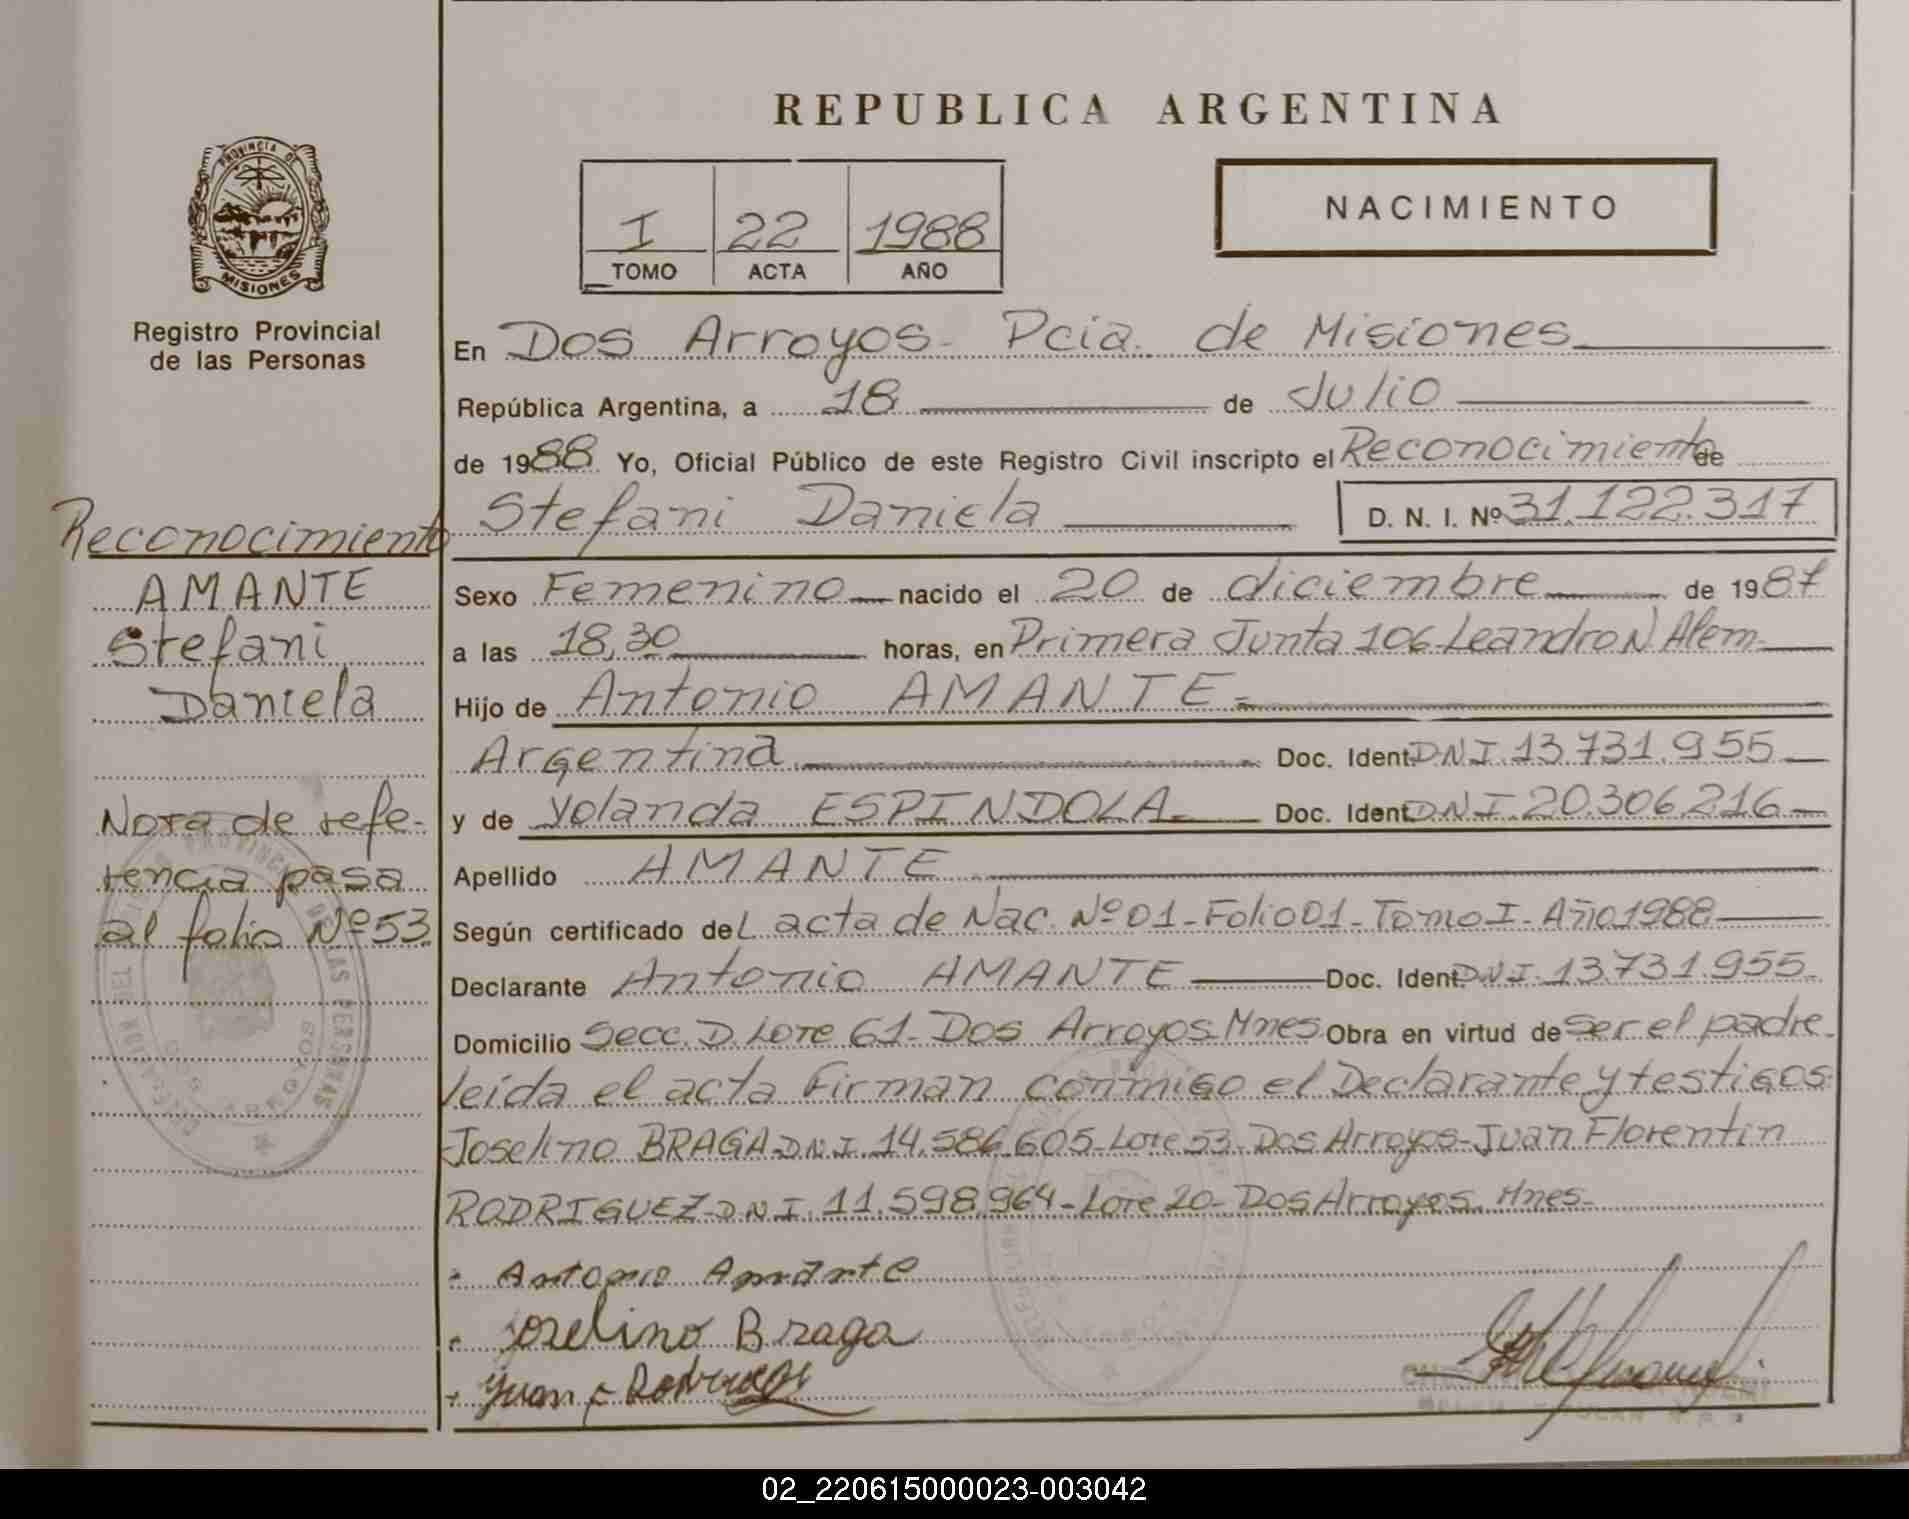 REPUBLICA ARGENTINA
PROVINCIA DE
MISIONES
Registro Provincial
de las Personas
I 22 1988
TOMO ACTA AÑO
NACIMIENTO
En Dos Arroyos - Pcia. de Misiones
República Argentina, a 18 de Julio
de 1988 Yo, Oficial Público de este Registro Civil inscripto el Reconocimiento de
Stefani Daniela D. N. I. Nº 31.122.317
Reconocimiento
AMANTE
Stefani
Daniela
Nota de refe-
rencia pasa
al folio Nº 53
Sexo Femenino nacido el 20 de diciembre de 1987
a las 18,30 horas, en Primera Junta 106 - Leandro N. Alem
Hijo de Antonio AMANTE -
Argentina Doc. Ident. DNI. 13.731.955
y de Yolanda ESPINDOLA Doc. Ident. DNI. 20.306.216
Apellido AMANTE
Según certificado del acta de Nac. Nº 01 - Folio 01 - Tomo I - Año 1988
Declarante Antonio AMANTE Doc. Ident. DNI. 13.731.955
Domicilio Secc. D. Lote 61 - Dos Arroyos Mnes Obra en virtud de ser el padre
leída el acta Firman conmigo el Declarante y testigos:
Joselino BRAGA DNI. 14.586.605 - Lote 53 - Dos Arroyos - Juan Florentin
RODRIGUEZ DNI. 11.598.964 - Lote 20 - Dos Arroyos. Mnes -
Antonio Amante
Joselino Braga
Juan F Rodriguez
02_220615000023-003042